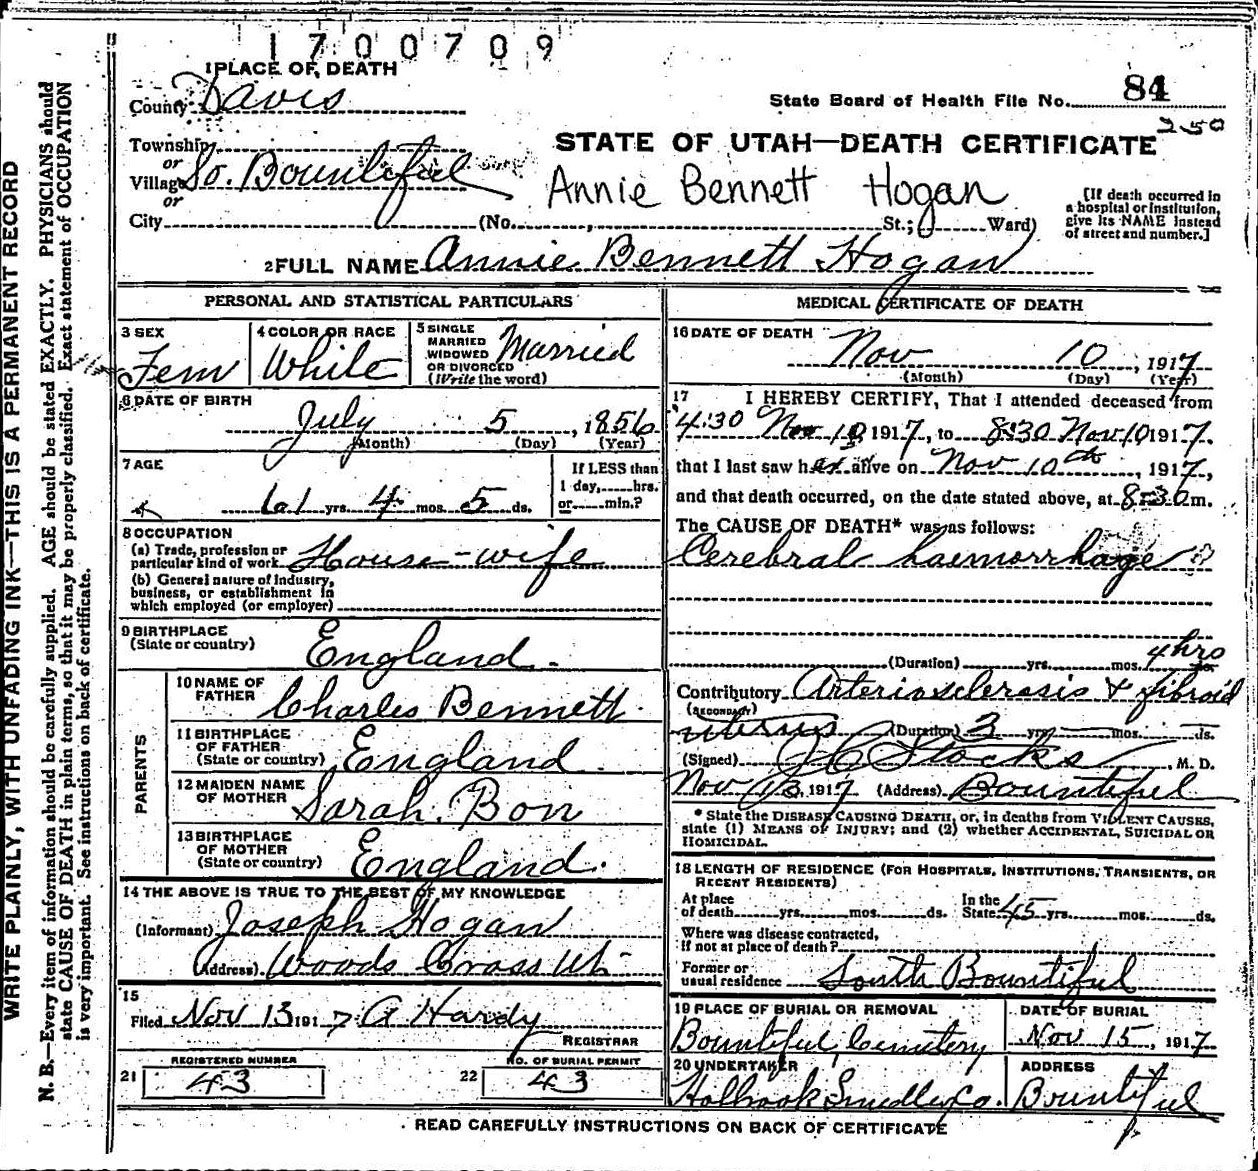 1700709
1 PLACE OF DEATH
County Davis
State Board of Health File No. 84
250
Township
or
Village So. Bountiful
or
City
STATE OF UTAH—DEATH CERTIFICATE
Annie Bennett Hogan
(No. , St.; Ward)
[If death occurred in
a hospital or institution,
give its NAME instead
of street and number.]
2 FULL NAME Annie Bennett Hogan
PERSONAL AND STATISTICAL PARTICULARS
3 SEX
Fem
4 COLOR OR RACE
White
5 SINGLE
MARRIED
WIDOWED
OR DIVORCED
(Write the word)
Married
6 DATE OF BIRTH
July 5, 1856
(Month) (Day) (Year)
7 AGE
61 yrs. 4 mos. 5 ds.
If LESS than
1 day, hrs.
or min.?
8 OCCUPATION
(a) Trade, profession or
particular kind of work House-wife
(b) General nature of industry,
business, or establishment in
which employed (or employer)
9 BIRTHPLACE
(State or country) England.
PARENTS
10 NAME OF
FATHER Charles Bennett.
11 BIRTHPLACE
OF FATHER
(State or country) England.
12 MAIDEN NAME
OF MOTHER Sarah Bon
13 BIRTHPLACE
OF MOTHER
(State or country) England.
14 THE ABOVE IS TRUE TO THE BEST OF MY KNOWLEDGE
(Informant) Joseph Hogan
(Address) Woods Cross Ut.
15
Filed Nov 13 1917 A Hardy
REGISTRAR
REGISTERED NUMBER
21 43
NO. OF BURIAL PERMIT
22 43
MEDICAL CERTIFICATE OF DEATH
16 DATE OF DEATH
Nov 10, 1917
(Month) (Day) (Year)
17 I HEREBY CERTIFY, That I attended deceased from
4:30 Nov 10 1917, to 8:30 Nov 10 1917.
that I last saw her alive on Nov 10th, 1917,
and that death occurred, on the date stated above, at 8-30 m.
The CAUSE OF DEATH* was as follows:
Cerebral haemorrhage
(Duration) yrs. mos. 4 hrs
Contributory Arteriosclerosis & fibroid
(SECONDARY)
uterus (Duration) 3 yrs. mos. ds.
(Signed) Stocks M. D.
Nov 13, 1917 (Address) Bountiful
* State the DISEASE CAUSING DEATH, or, in deaths from VIOLENT CAUSES,
state (1) MEANS OF INJURY; and (2) whether ACCIDENTAL, SUICIDAL OR
HOMICIDAL.
18 LENGTH OF RESIDENCE (FOR HOSPITALS, INSTITUTIONS, TRANSIENTS, OR
RECENT RESIDENTS)
At place
of death yrs. mos. ds.
In the
State 45 yrs. mos. ds.
Where was disease contracted,
if not at place of death?
Former or
usual residence South Bountiful
19 PLACE OF BURIAL OR REMOVAL
Bountiful Cemetery
DATE OF BURIAL
Nov 15, 1917.
20 UNDERTAKER
Holbrook Smedley Co.
ADDRESS
Bountiful
READ CAREFULLY INSTRUCTIONS ON BACK OF CERTIFICATE
WRITE PLAINLY, WITH UNFADING INK—THIS IS A PERMANENT RECORD
N. B.—Every item of information should be carefully supplied. AGE should be stated EXACTLY. PHYSICIANS should
state CAUSE OF DEATH in plain terms, so that it may be properly classified. Exact statement of OCCUPATION
is very important. See instructions on back of certificate.